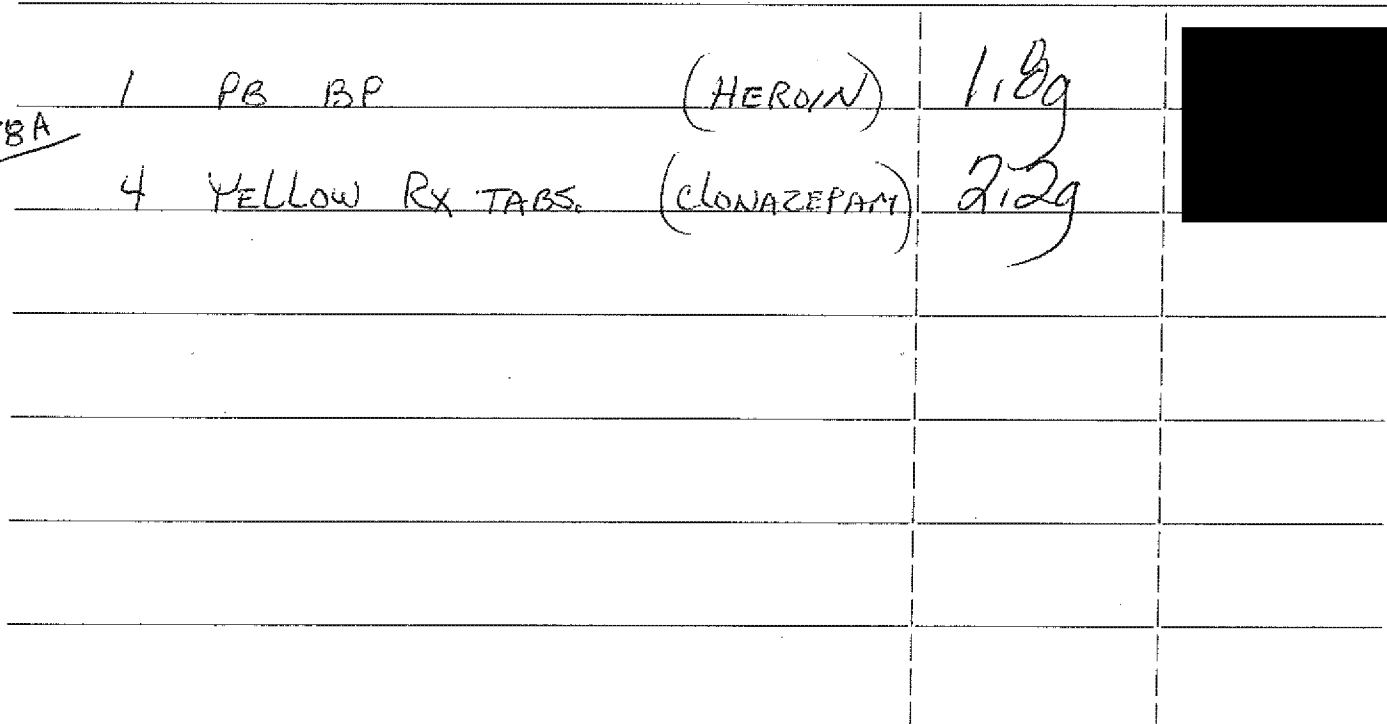 1 PB BP (HEROIN) 1.8g
8A
4 YELLOW RX TABS. (CLONAZEPAM) 2.2g